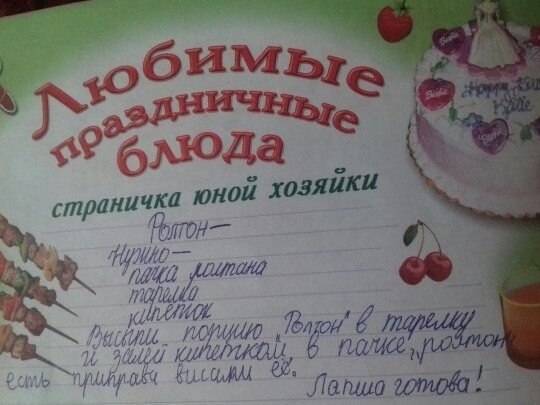 Любимые
праздничные
блюда
страничка юной хозяйки
Ролтон—
Нужно—
пачка ролтана
тарелка
кипеток
Высыпи порцию „Ролтон" в тарелку
и залей кипетком, в пачке „ролтон
есть приправа висами её.
Лапша готова!
Barbie
Barbie
Barbie
Happy